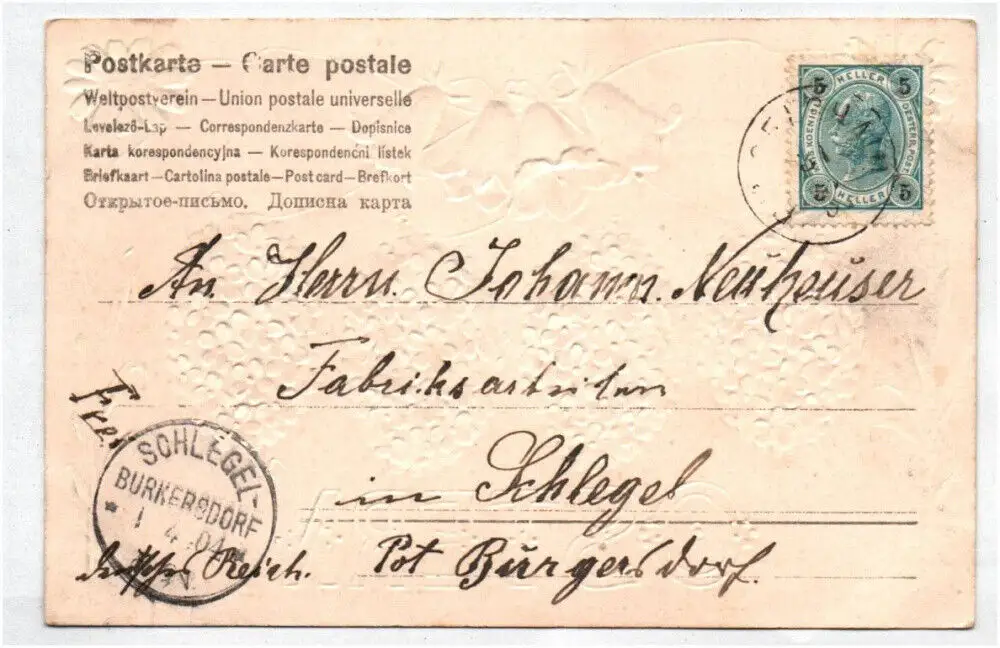 Postkarte — Carte postale
Weltpostverein — Union postale universelle
Levelező-Lap — Correspondenzkarte — Dopisnice
Karta korespondencyjna — Korespondenční lístek
Briefkaart — Cartolina postale — Post card — Brefkort
Открытое-письмо. Дописна карта
5 HELLER 5
5 HELLER 5
An Herrn Johann Neuheuser
Fabriksarbeiten
in Schlegel
Pot Burgersdorf.
Frei
SCHLEGEL-
BURKERSDORF
* 1 4 04
Reich.